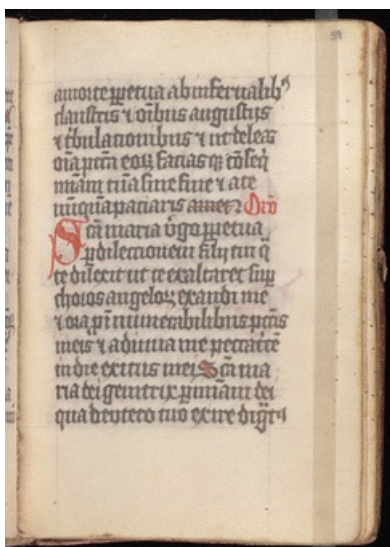 a morte ppetua ab infernalib⁹
claustris ⁊ oĩbus angustijs
⁊ tͥbulationibus ⁊ ut deleas
oĩa pctã eoꝝ facias qꝫ cõseq̃
miãm tuã sine fine ⁊ a te
nũquã paciaris amet ⁊ Orõ
Scã maria v̾go ppetua
p dilectionem filij tui q̃
te dilexit ut te exaltaret sup
choros angeloꝝ exaudi me
⁊ oĩa p̃
meis ⁊ adiuua me peccatcẽ
in die exitus mei Scã ma
ria dei genitrix p miãm dei
qua deuoteco tuo exire dig̃t